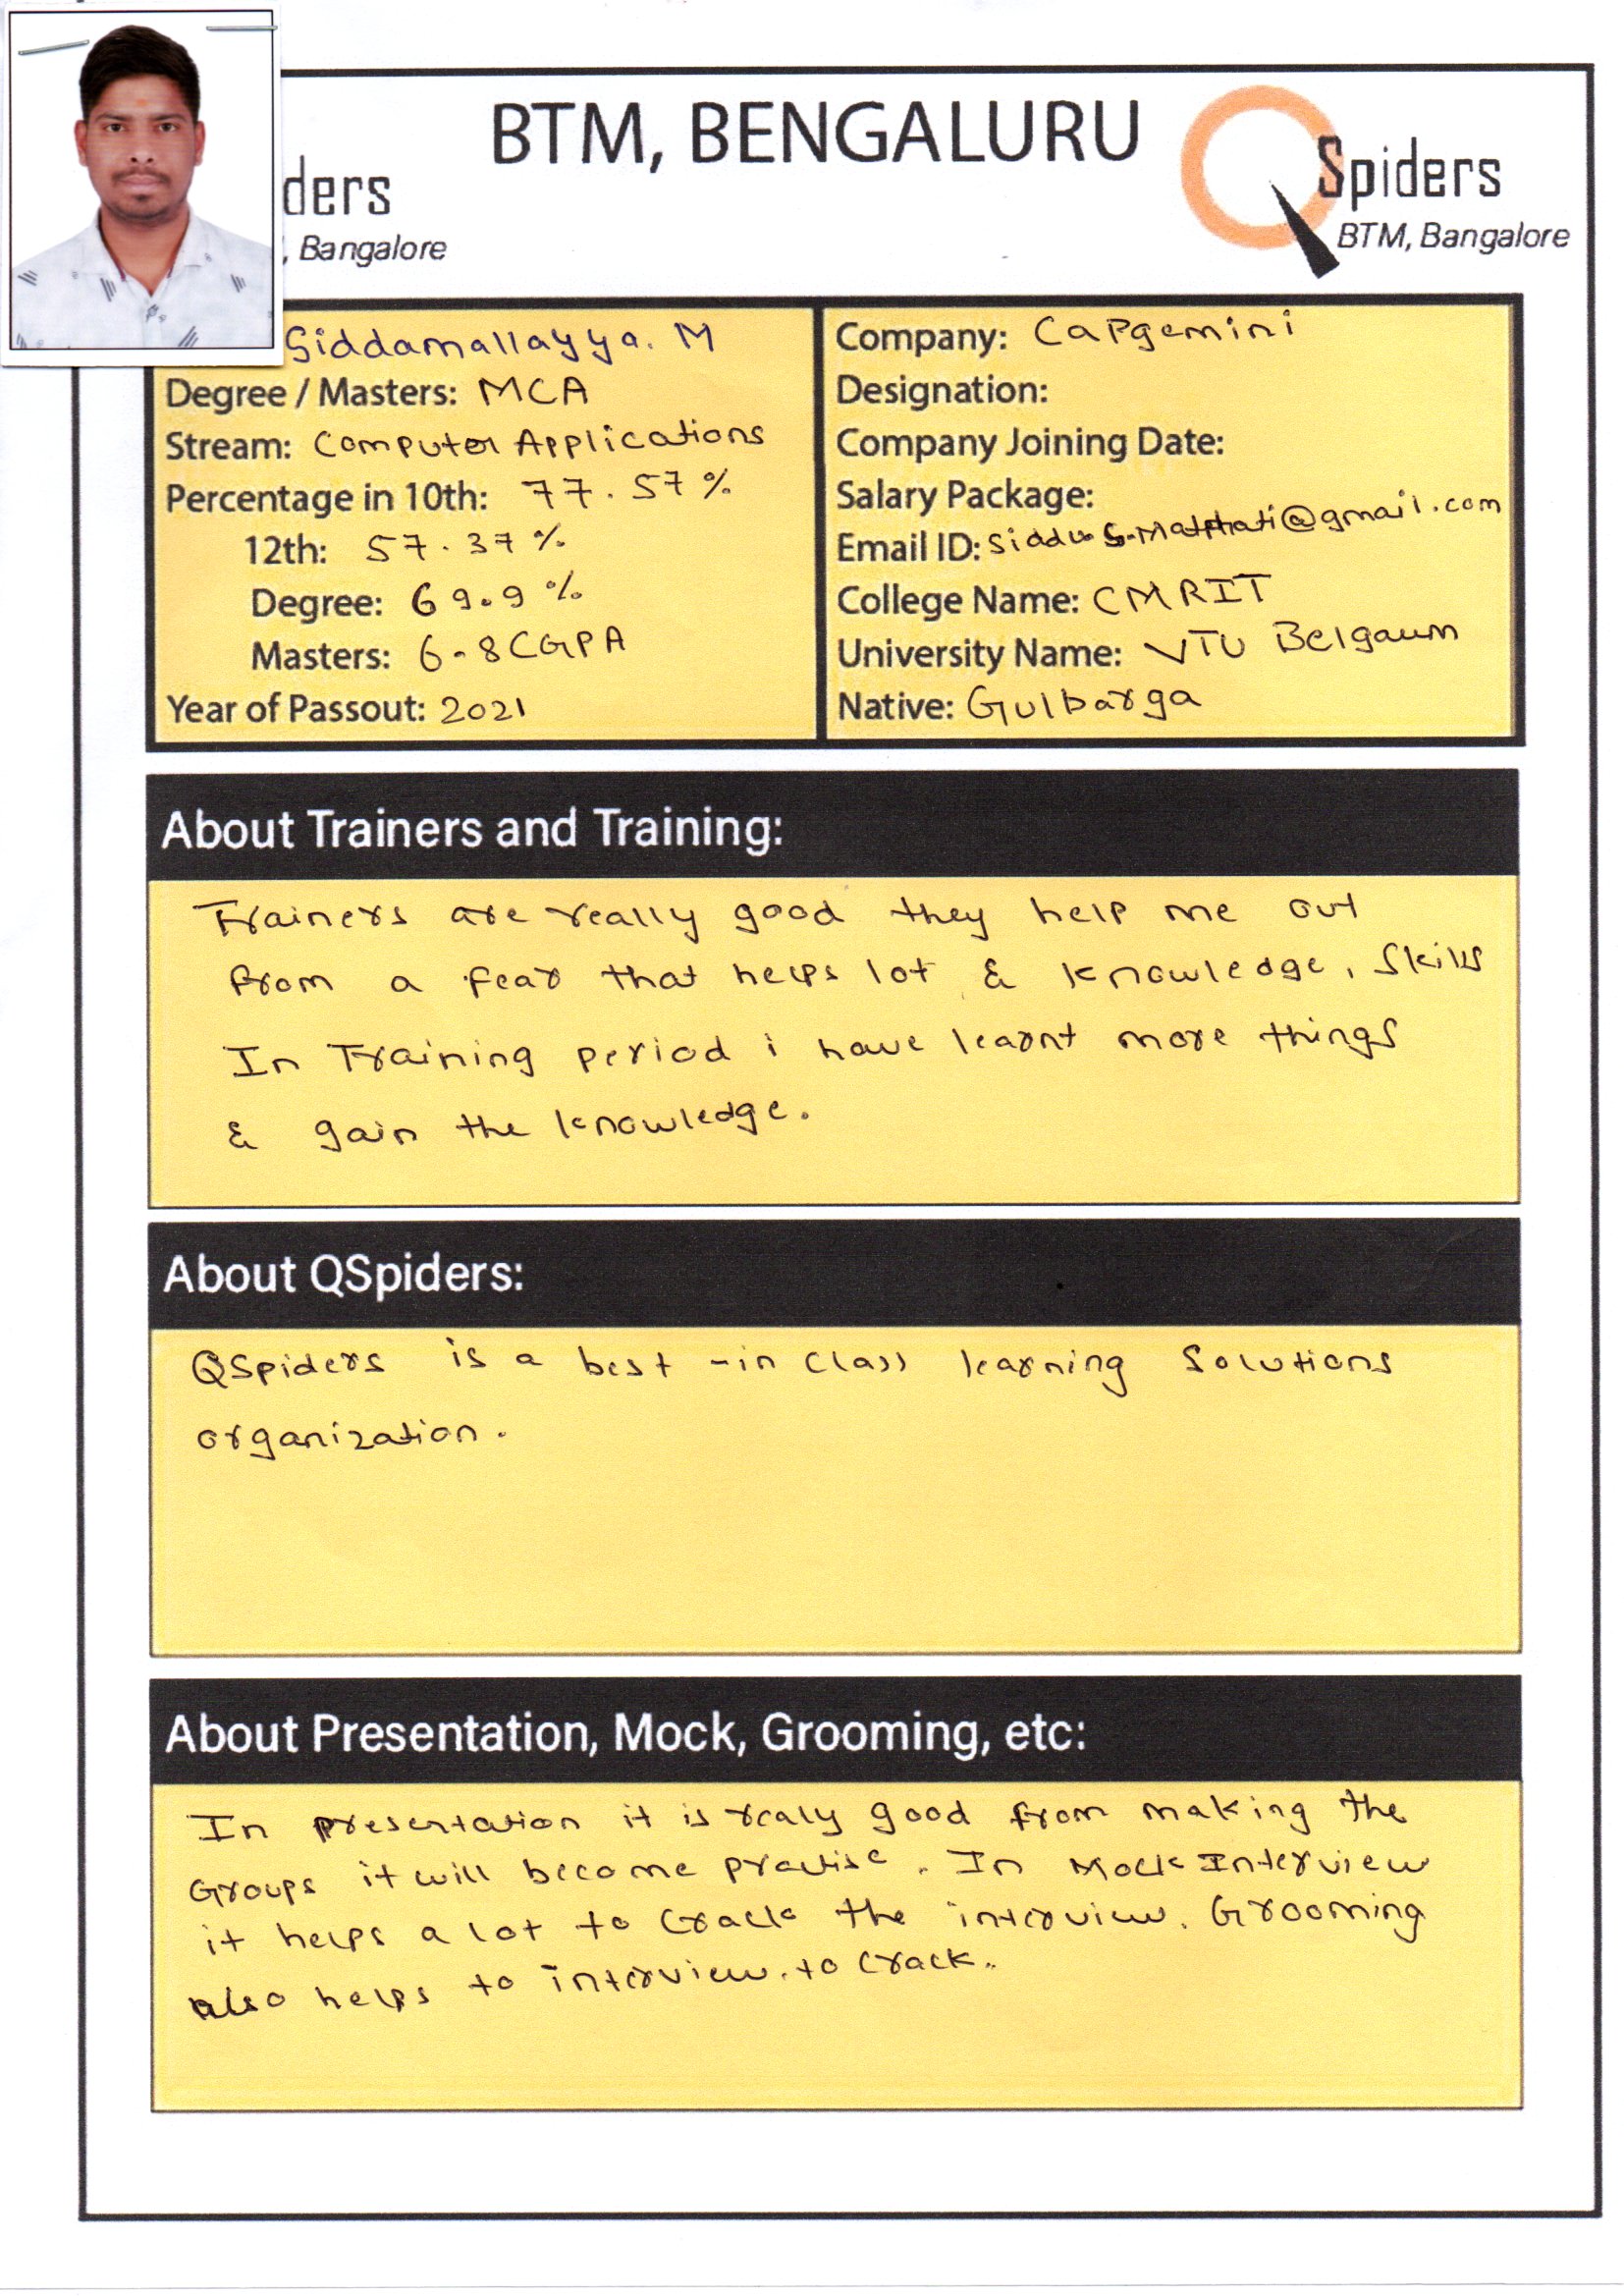 BTM, BENGALURU
ders
, Bangalore
Spiders
BTM, Bangalore
Siddamallayya. M
Degree / Masters: MCA
Stream: Computer Applications
Percentage in 10th: 77.57 %
12th: 57.37 %
Degree: 69.9 %
Masters: 6.8 CGPA
Year of Passout: 2021
Company: Capgemini
Designation:
Company Joining Date:
Salary Package:
Email ID: @gmail.com
College Name: CMRIT
University Name: VTU Belgaum
Native: Gulbarga
About Trainers and Training:
Trainers are really good they help me out
from a fear that helps lot & knowledge, Skills
In Training period i have learnt more things
& gain the knowledge.
About QSpiders:
QSpiders is a best -in class learning Solutions
organization.
About Presentation, Mock, Grooming, etc:
In presentation it is realy good from making the
Groups it will become practise. In Mock Interview
it helps a lot to Crack the interview. Grooming
also helps to interview. to Crack.